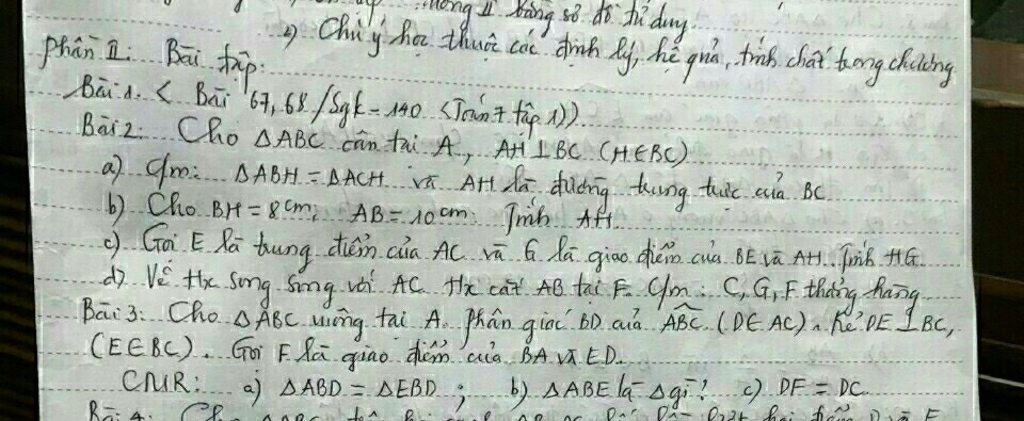 bằng sơ đồ tư duy
2) Chú ý học thuộc các định lý, hệ quả, tính chất trong chương
Phần II: Bài tập:
Bài 1: < Bài 67, 68 /Sgk - 140 <Toán 7 tập 1>)
Bài 2: Cho ΔABC cân tại A, AH ⊥ BC (H∈BC)
a) C/m: ΔABH = ΔACH và AH là đường trung trực của BC
b) Cho BH = 8cm; AB = 10cm. Tính AH.
c) Gọi E là trung điểm của AC và G là giao điểm của BE và AH. Tính HG.
d) Vẽ Hx song song với AC. Hx cắt AB tại F. C/m: C, G, F thẳng hàng
Bài 3: Cho ΔABC vuông tại A. Phân giác BD của ABC (D∈AC). Kẻ DE ⊥ BC,
(E∈BC). Gọi F là giao điểm của BA và ED.
CMR: a) ΔABD = ΔEBD ; b) ΔABE là Δ gì? c) DF = DC.
Bài 4: Cho ΔABC